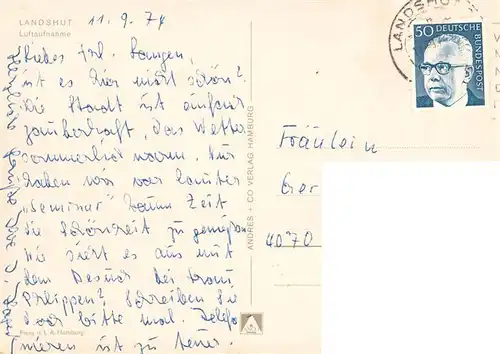 LANDSHUT
Luftaufnahme
11.9.74
Liebes Frl. Langen,
ist es hier nicht schön?
Die Stadt ist einfach
zauberhaft, das Wetter
sommerlich warm. Nur
haben wir vor lauter
"Seminar" kaum Zeit
die Schönheit zu genießen
Wie sieht es aus mit
dem Besuch bei Frau
Philippen? Schreiben Sie
doch bitte mal. Telefo
nieren ist zu teuer.
Herzliche Grüße Ihre
ANDRES + CO VERLAG HAMBURG
LANDSHUT
50 DEUTSCHE BUNDESPOST
Fräulein
Ger
4070